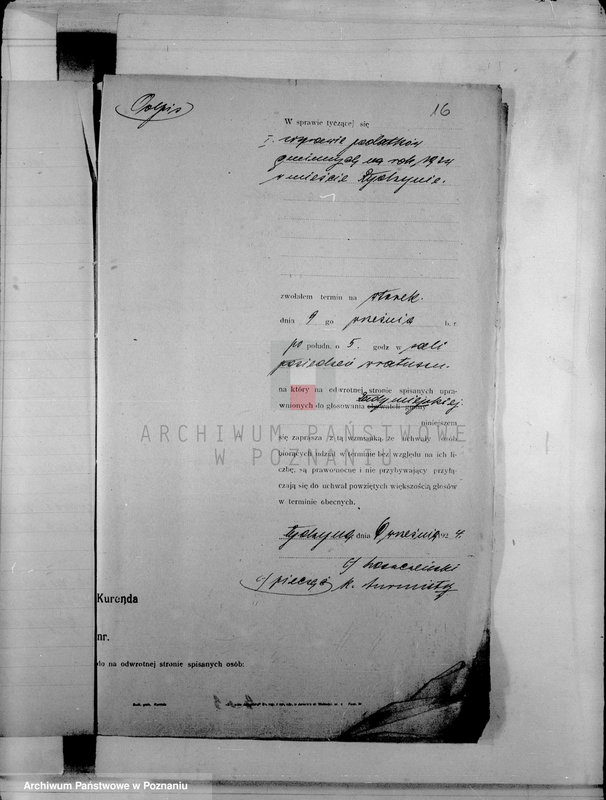 Odpis
16
W sprawie tyczącej się
I. uzysranie podatków
gminnych na rok 1924
w mieście Rydzynie.
zwołałem termin na wtorek.
dnia 9 go września b. r.
po połudn. o 5. godz w sali
posiedzeń ratusza.
na który na odwrotnej stronie spisanych upra-
wnionych do głosowania obywateli gminy Rady miejskiej
niniejszem
się zaprasza z tą wzmianką, że uchwały osób
biorących udział w terminie bez względu na ich li-
czbę, są prawomocne i nie przybywający przyłą-
czają się do uchwał powziętych większością głosów
w terminie obecnych.
Rydzyna, dnia 6 września 1924.
(-) pieczęć
Kurenda
nr.
do na odwrotnej stronie spisanych osób:
ARCHIWUM PAŃSTWOWE
W POZNANIU
Archiwum Państwowe w Poznaniu